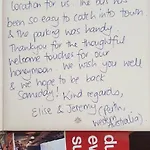 location for us. The bus has
been so easy to catch into town
& the parking was handy.
Thankyou for the thoughtful
welcome touches for our
honeymoon. We wish you well
& we hope to be back
someday! Kind regards,
Elise & Jeremy (Perth,
West Australia)